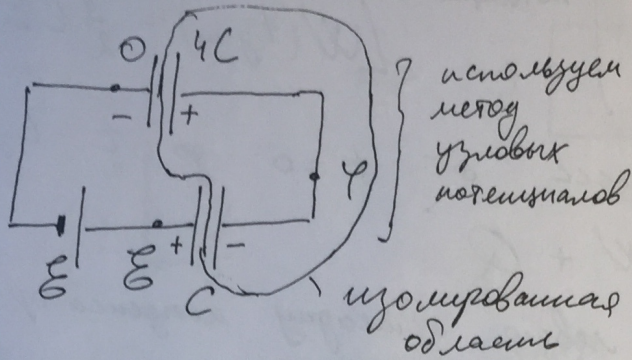 0 4C
- +
используем
метод
узловых
потенциалов
φ
ℰ ℰ + -
C
изолированная
область